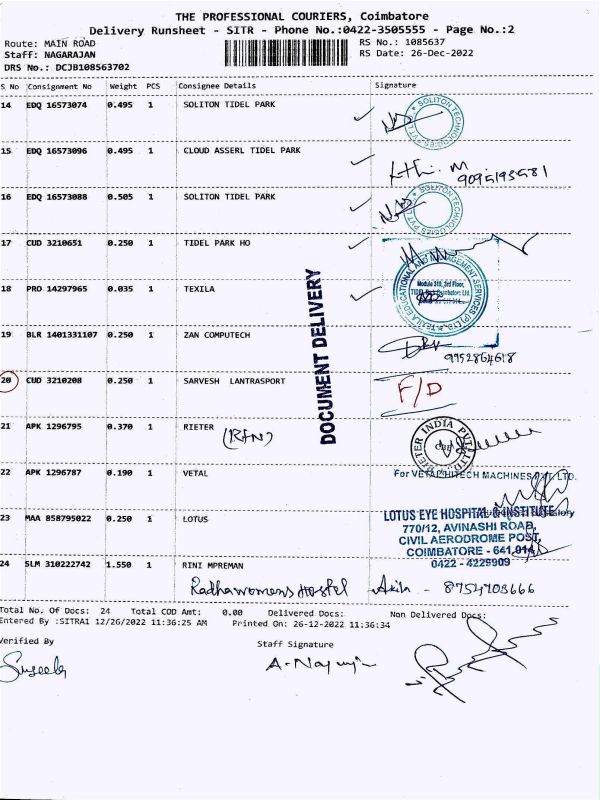 THE PROFESSIONAL COURIERS, Coimbatore
Delivery Runsheet - SITR - Phone No.:0422-3505555 - Page No.:2
Route: MAIN ROAD
RS No.: 1085637
Staff: NAGARAJAN
RS Date: 26-Dec-2022
DRS No.: DCJB108563702
S No Consignment No Weight PCS Consignee Details Signature
14 EDQ 16573074 0.495 1 SOLITON TIDEL PARK
SOLITON TECHNOLOGIES PVT LTD
15 EDQ 16573096 0.495 1 CLOUD ASSERL TIDEL PARK
M
9095193581
16 EDQ 16573088 0.505 1 SOLITON TIDEL PARK
SOLITON TECHNOLOGIES PVT LTD
17 CUD 3210651 0.250 1 TIDEL PARK HO
18 PRO 14297965 0.035 1 TEXILA
TEXILA EDUCATIONAL AND MANAGEMENT SERVICES (P) LTD.
Module 310, 3rd Floor,
DOCUMENT DELIVERY
19 BLR 1401331107 0.250 1 ZAN COMPUTECH
9952864618
20 CUD 3210208 0.250 1 SARVESH LANTRASPORT
F/D
21 APK 1296795 0.370 1 RIETER
RIETER INDIA PVT.
CBE
22 APK 1296787 0.190 1 VETAL
For VETAL HITECH MACHINES PVT. LTD.
23 MAA 858795022 0.250 1 LOTUS
LOTUS EYE HOSPITAL & INSTITUTE
770/12, AVINASHI ROAD,
CIVIL AERODROME POST,
COIMBATORE - 641 014
0422 - 4229909
24 SLM 310222742 1.550 1 RINI MPREMAN
Radha womens Hostel Akila - 8754703666
Total No. Of Docs: 24 Total COD Amt: 0.00 Delivered Docs: Non Delivered Docs:
Entered By :SITRA1 12/26/2022 11:36:25 AM Printed On: 26-12-2022 11:36:34
Verified By
Staff Signature